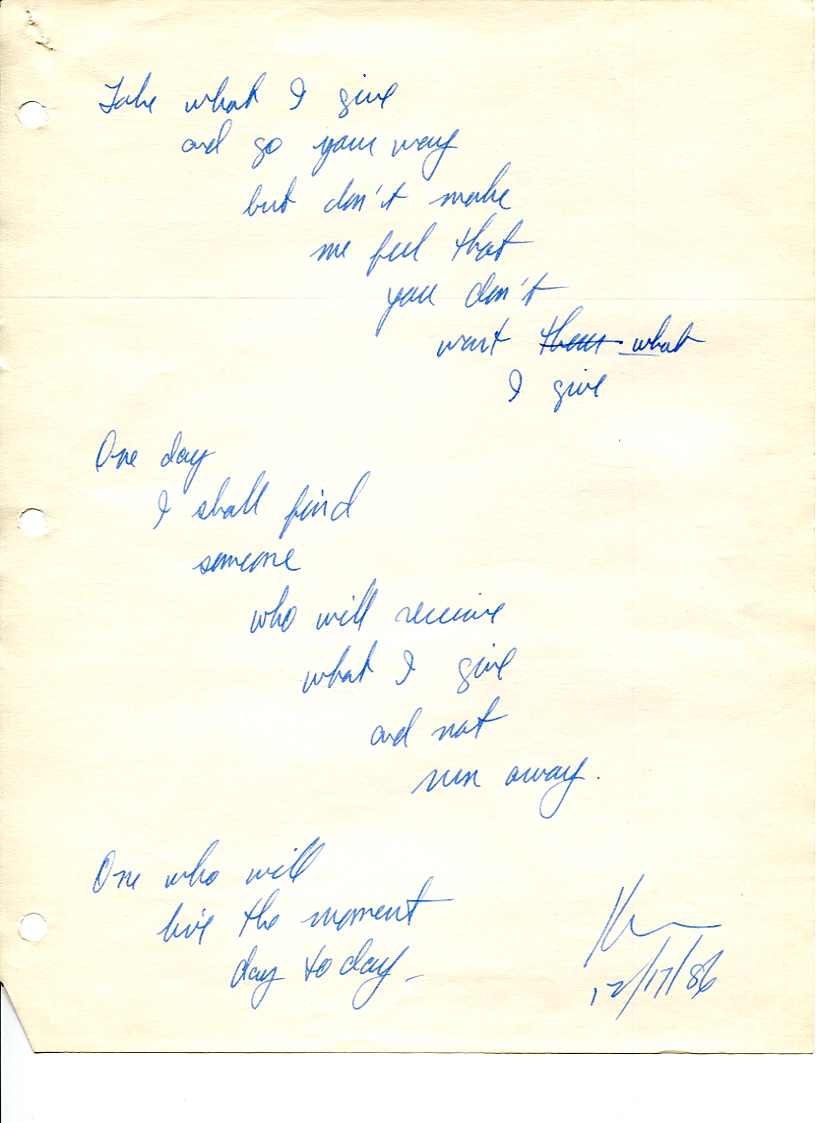 Take what I give
and go your way
but don't make
me feel that
you don't
want them what
I give
One day
I shall find
someone
who will receive
what I give
and not
run away.
One who will
live the moment
day to day
12/17/86